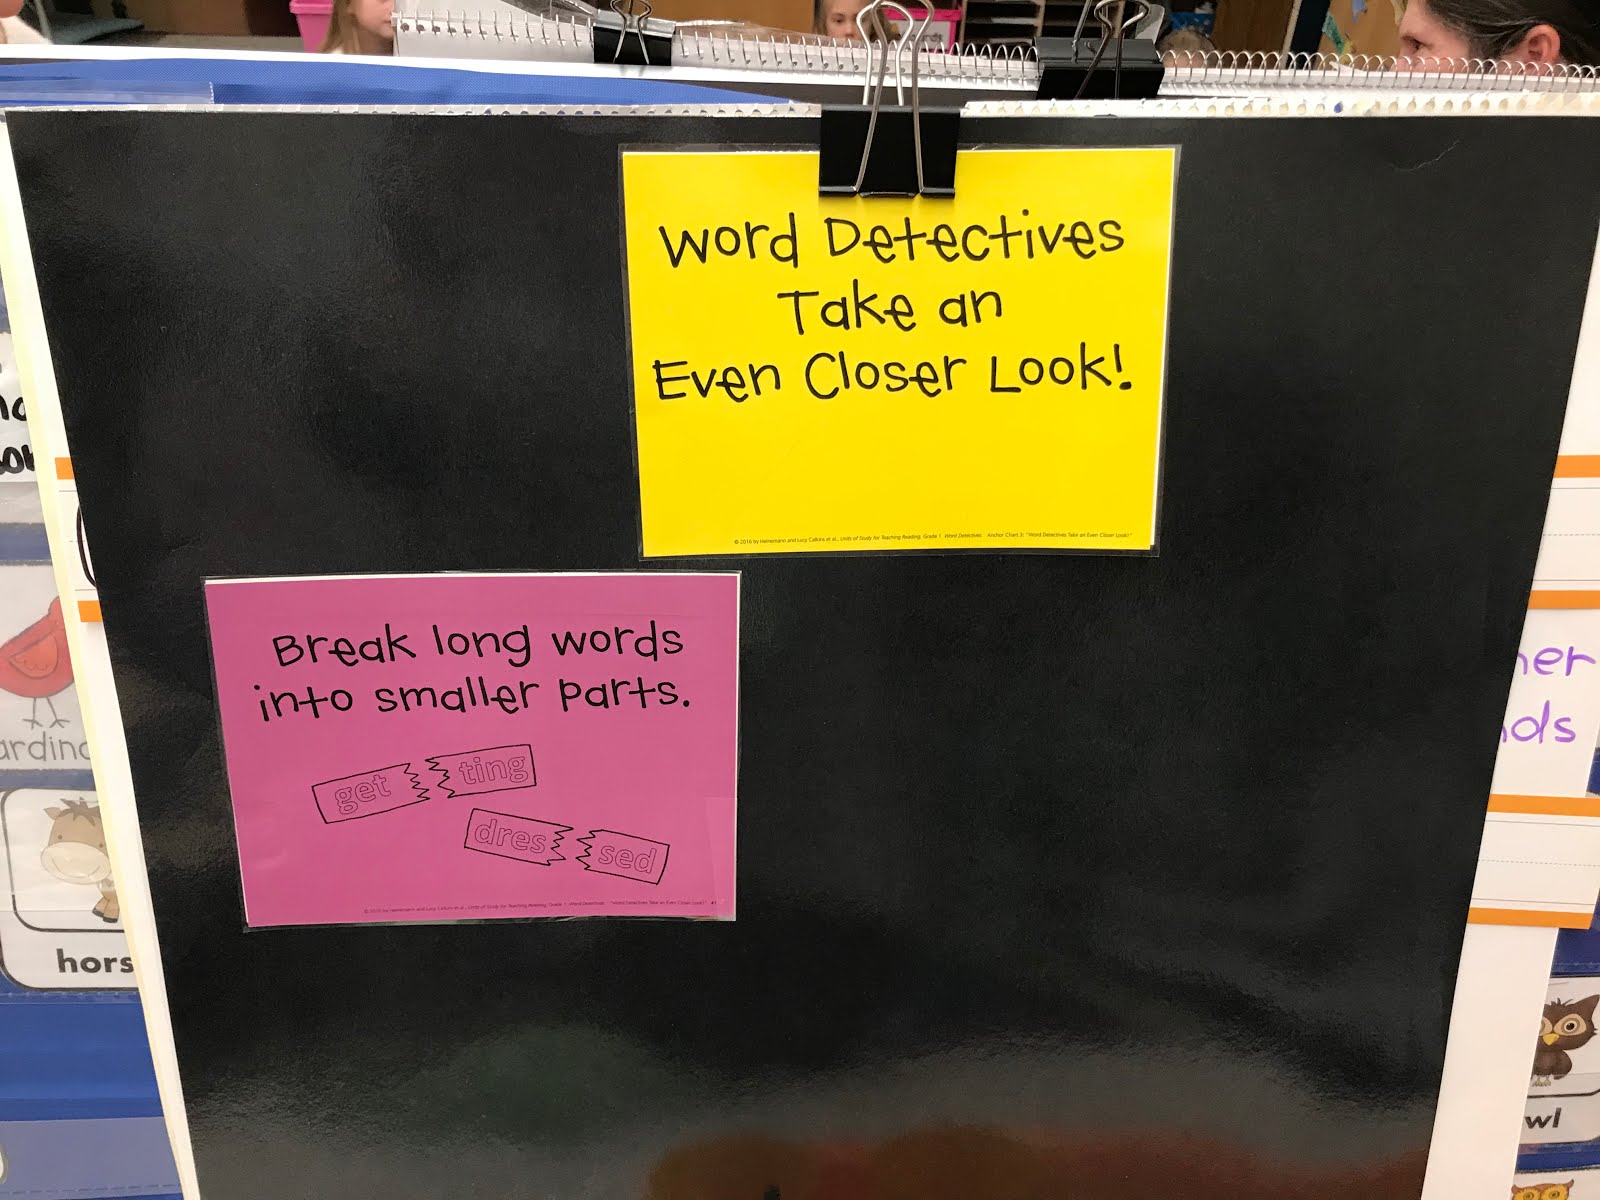 Word Detectives
Take an
Even Closer Look!
© 2016 by Heinemann and Lucy Calkins et al., Units of Study for Teaching Reading, Grade 1 Word Detectives. Anchor Chart 3: "Word Detectives Take an Even Closer Look!"
Break long words
into smaller parts.
get ting
dres sed
© 2016 by Heinemann and Lucy Calkins et al., Units of Study for Teaching Reading, Grade 1 Word Detectives. "Word Detectives Take an Even Closer Look!"
ardina
hors
her
nds
wl